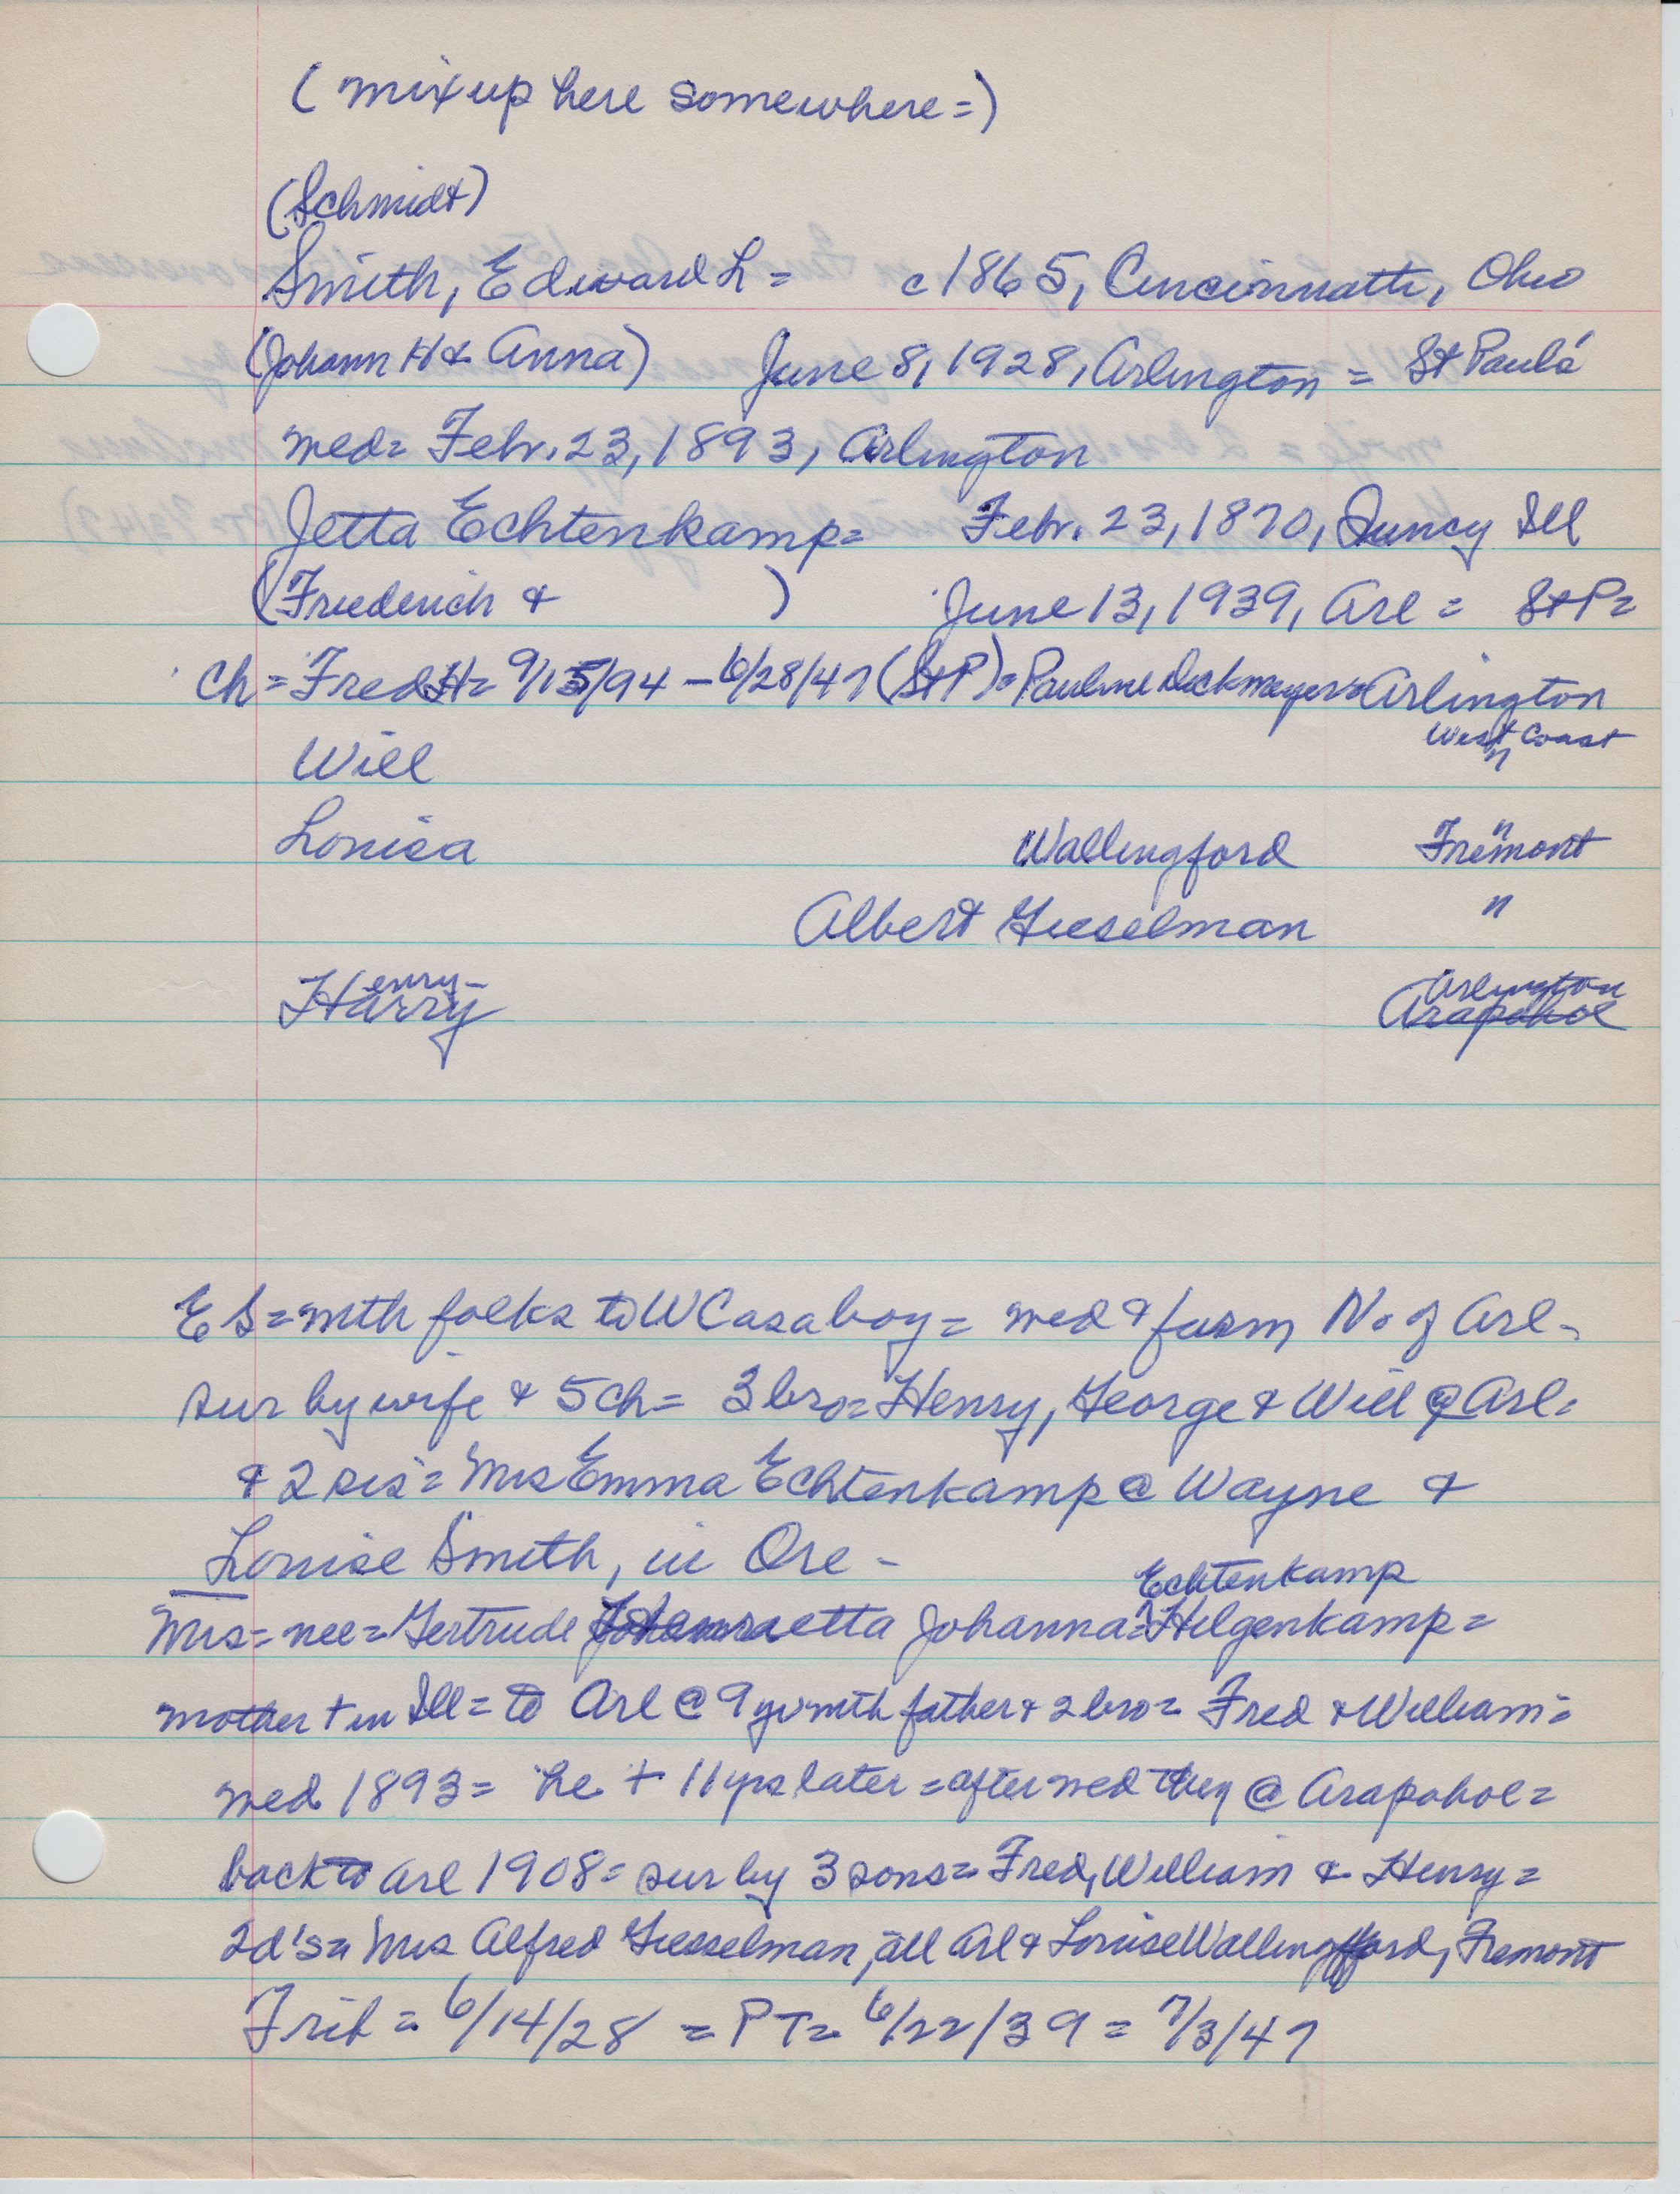 (mixup here somewhere=)
(Schmidt)
Smith, Edward L = c1865, Cincinnatti, Ohio
(Johann H & Anna) June 8, 1928, Arlington = St Paul's
wed= Febr. 23, 1893, Arlington
Jetta Echtenkamp= Febr. 23, 1870, Quncy Ill
(Friederich & ) June 13, 1939, Arl = St P=
Ch = Fred H= 9/15/94 – 6/28/47 (St P)= Pauline Dickmeyer= Arlington
West Coast
Will "
Louisa Wallingford Fremont
Albert Gieselman "
Henry-
Harry Arlington
Arapahoe
E S= with folks to W C as a boy = wed & farm N. of Arl-
sur by wife & 5 ch= 3 bro= Henry, George & Will @ Arl-
& 2 sis= Mrs Emma Echtenkamp @ Wayne &
Louise Smith, in Ore -
Echtenkamp
Mrs= nee= Gertrude etta Johanna= ? Hilgenkamp=
mother + in Ill= to Arl @ 9 yr with father & 2 bro= Fred & William=
wed 1893= he + 11 yrs later = after wed they @ Arapahoe=
back to Arl 1908= sur by 3 sons= Fred, William & Henry=
2 d's= Mrs Alfred Giesselman, all Arl & Louise Wallingford, Fremont
Trib = 6/14/28 = PT= 6/22/39 = 7/3/47